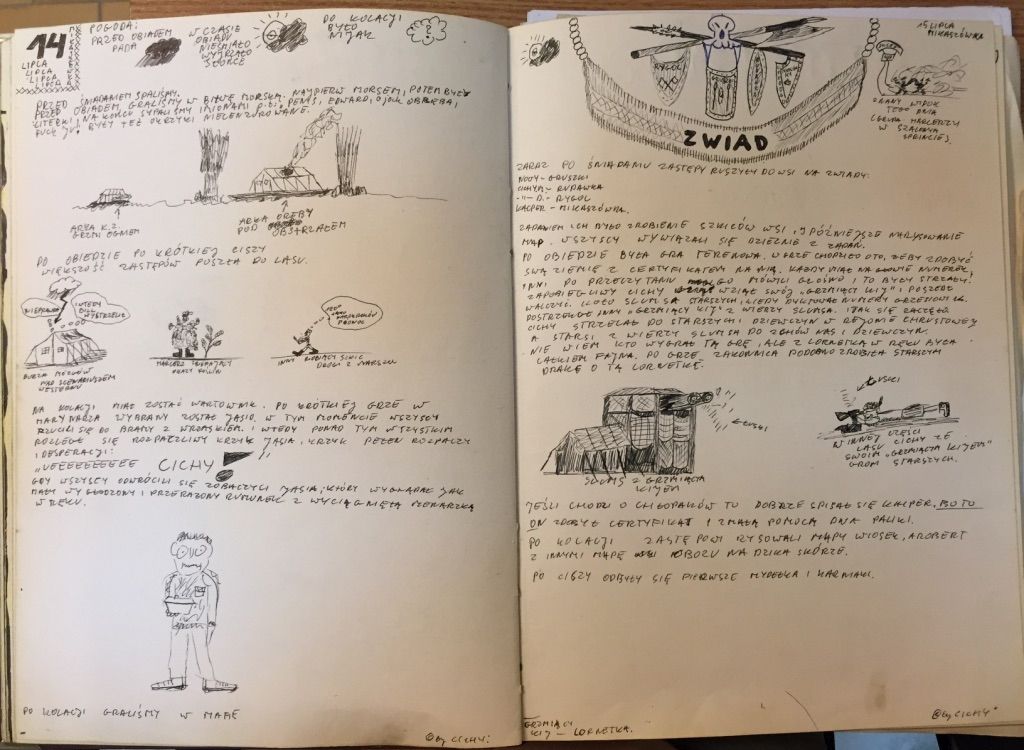 14
LIPCA
LIPCA
LIPCA
LIPCA
POGODA:
PRZED OBIADEM
PADA
W CZASIE
OBIADU
NIEŚMIAŁO
WYJRZAŁO
SŁOŃCE
DO KOLACJI
BYŁO
NIJAK
?
PRZED ŚNIADANIEM SPALIŚMY.
PRZED OBIADEM, GRALIŚMY W BITWĘ MORSKĄ. NAJPIERW MORSEM, POTEM BYŁY
LITERKI, NA KOŃCU SYPALIŚMY IMIONAMI P.t.: PENIS, EDWARD,
BYŁY TEŻ OKRZYKI NIECENZUROWANE.
ARKA K.Z.
GRZMI OGNIEM
ARKA
POD OBSTRZAŁEM
PO OBIEDZIE PO KRÓTKIEJ CISZY
WIĘKSZOŚĆ ZASTĘPÓW POSZŁA DO LASU.
WTEDY
BURZA MÓZGÓW
NAD SCENARIUSZEM
WESTERNU
HARCERZ
INNY ROBIĄCY SZKIC
DROGI Z MARSZU
NA KOLACJI MIAŁ ZOSTAĆ WARTOWNIK. PO KRÓTKIEJ GRZE W
MARYNARZA WYBRANY ZOSTAŁ JASIO. W TYM MOMENCIE WSZYSCY
RZUCILI SIĘ DO BRAMY Z WRZASKIEM. I WTEDY PONAD TYM WSZYSTKIM
ROZLEGŁ SIĘ ROZPACZLIWY KRZYK JASIA, KRZYK PEŁEN ROZPACZY
I DESPERACJI:
CICHY
GDY WSZYSCY ODWRÓCILI SIĘ ZOBACZYLI JASIA, KTÓRY WYGLĄDAŁ JAK
MAŁY WYGŁODZONY I PRZERAŻONY RUMUNEK Z WYCIĄGNIĘTĄ MENAŻKĄ
W RĘKU.
PO KOLACJI GRALIŚMY W MAFIĘ
@by CICHY:
15 LIPCA
MIKASZÓWKA
RYGOL
ZWIAD
ZNANY WIDOK
TEGO DNIA
W SZALONYM
SPRINCIE)
ZARAZ PO ŚNIADANIU ZASTĘPY RUSZYŁY DO WSI NA ZWIADY:
GRUSZKI
RUDAWKA
-II- RYGOL
KACPER - MIKASZÓWKA.
ZADANIEM ICH BYŁO ZROBIENIE SZKICÓW WSI, I PÓŹNIEJSZE NARYSOWANIE
MAP. WSZYSCY WYWIĄZALI SIĘ DZIELNIE Z ZADAŃ.
PO OBIEDZIE BYŁA GRA TERENOWA. W GRZE CHODZIŁO OTO, ŻEBY ZDOBYĆ
SWĄ ZIEMIĘ Z CERTYFIKATEM NA NIĄ. KAŻDY MIAŁ NA GŁOWIE NUMEREK,
INNI PO PRZECZYTANIU GO MÓWILI GŁOŚNO I TO BYŁY STRZAŁY.
ZAPOBIEGLIWY CICHY WZIĄŁ SWÓJ „GRZMIĄCY KIJ” I POSZEDŁ
WALCZYĆ. KOŁO SLUMSA STARSZYCH, KIEDY DYKTOWAŁ NUMERY
DOSTRZEGŁ INNY „GRZMIĄCY KIJ” Z WIEŻY SLUMSA. I TAK SIĘ ZACZĘŁO.
CICHY STRZELAŁ DO STARSZYCH I DZIEWCZYN W REJONIE CHRUSTOWEJ
A STARSI Z WIEŻY SLUMSA DO NAS I DZIEWCZYN.
NIE WIEM KTO WYGRAŁ TĄ GRĘ, ALE Z LORNETKĄ W RĘKU BYŁA
CAŁKIEM FAJNA. PO GRZE, PODOBNO ZROBIŁA STARSZYM
DRAKĘ O TĄ LORNETKĘ.
SLUMS Z GRZMIĄCYM
KIJEM
W INNEJ CZĘŚCI
LASU CICHY ZE
SWOIM „GRZMIĄCYM KIJEM”
GROMI STARSZYCH.
JEŚLI CHODZI O CHŁOPAKÓW TO DOBRZE SPISAŁ SIĘ KACPER, BO TO
ON ZDOBYŁ CERTYFIKAT Z MAŁĄ POMOCĄ
PO KOLACJI ZASTĘPOWI RYSOWALI MAPY WIOSEK, A ROBERT
Z INNYMI MAPĘ OBOZU NA DZIKA SKÓRZE.
PO CISZY ODBYŁY SIĘ PIERWSZE MYDEŁKA I KARNIAKI.
GRZMIĄCY
KIJ - LORNETKA.
@by CICHY: